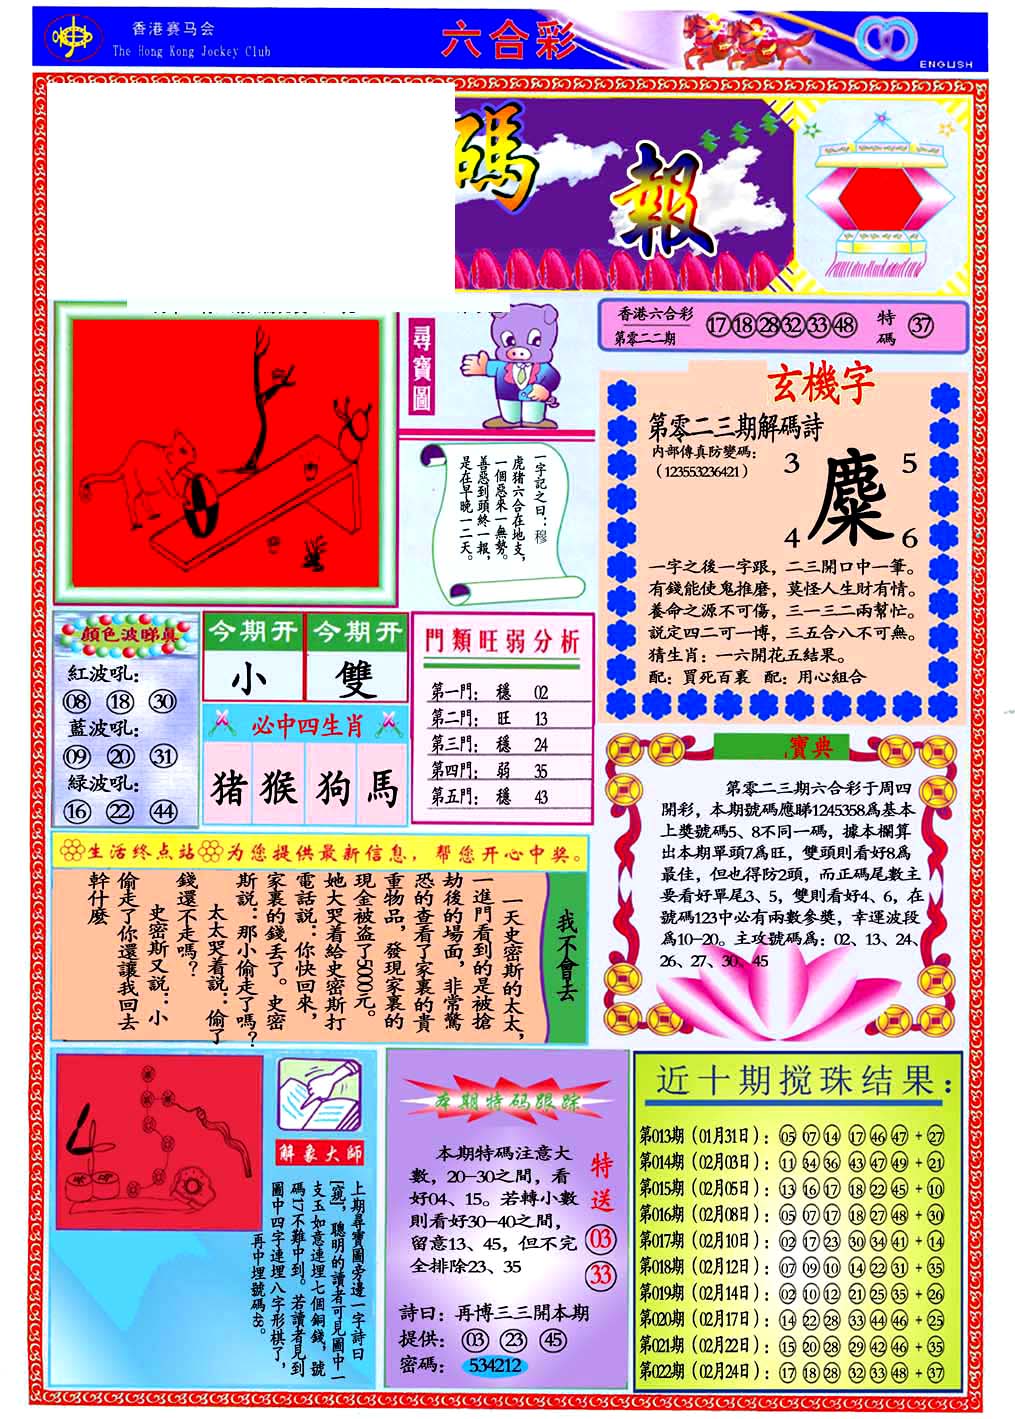 香港赛马会
The Hong Kong Jockey Club
六合彩
ENGLISH
碼報
尋寶圖
香港六合彩
第零二二期
17 18 28 32 33 48
特碼
37
一字記之曰：穆
虎猪六合在地支，
一個惡來一無勢。
善惡到頭終一報，
是在早晚一二天。
玄機字
第零二三期解碼詩
内部傳真防變碼：
（123553236421）
3 5
麋
4 6
一字之後一字跟，二三開口中一筆。
有錢能使鬼推磨，莫怪人生財有情。
養命之源不可傷，三一三二兩幫忙。
説定四二可一博，三五合八不可無。
猜生肖：一六開花五結果。
配：買死百裏 配：用心組合
顔色波睇真
紅波吼：
08 18 30
藍波吼：
09 20 31
緑波吼：
16 22 44
今期开 今期开
小 雙
必中四生肖
猪 猴 狗 馬
門類旺弱分析
第一門： 穩 02
第二門： 旺 13
第三門： 穩 24
第四門： 弱 35
第五門： 穩 43
寶典
第零二三期六合彩于周四
開彩，本期號碼應睇1245358爲基本
上奬號碼5、8不同一碼，據本欄算
出本期單頭7爲旺，雙頭則看好8爲
最佳，但也得防2頭，而正碼尾數主
要看好單尾3、5，雙則看好4、6，在
號碼123中必有兩數參奬，幸運波段
爲10-20。主攻號碼爲：02、13、24、
26、27、30、45
生活终点站 为您提供最新信息，帮您开心中奖。
我不會去
一天史密斯的太太，
一進門看到的是被搶
劫後的場面，非常驚
恐的查看了家裏的貴
重物品，發現家裏的
現金被盗了5000元。
她大哭着給史密斯打
電話説：你快回來，
家裏的錢丢了。史密
斯説：那小偷走了嗎？
太太哭着説：偷了
錢還不走嗎？
史密斯又説：小
偷走了你還讓我回去
幹什麽
解象大师
上期尋寶圖旁邊一字詩曰
[窺]，聰明的讀者可見圖中一
支玉如意連埋七個銅錢，號
碼17不難中到。若讀者見到
圖中四字連埋八字形棋了，
再中埋號碼48。
本期特码跟踪
本期特碼注意大
數，20-30之間，看
好04、15。若轉小數
則看好30-40之間，
留意13、45，但不完
全排除23、35
特送
03
33
詩曰：再博三三開本期
提供：03 23 45
密碼：534212
近十期搅珠结果：
第013期（01月31日）：05 07 14 17 46 47 + 27
第014期（02月03日）：11 34 36 43 47 49 + 21
第015期（02月05日）：13 16 17 18 22 45 + 10
第016期（02月08日）：05 07 17 18 27 48 + 30
第017期（02月10日）：02 17 23 30 34 41 + 14
第018期（02月12日）：07 09 10 14 22 31 + 35
第019期（02月14日）：02 10 12 21 25 35 + 26
第020期（02月17日）：14 22 28 33 44 46 + 25
第021期（02月22日）：15 20 28 29 42 46 + 35
第022期（02月24日）：17 18 28 32 33 48 + 37